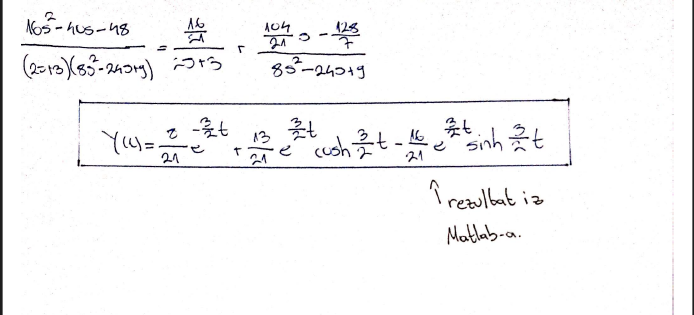 (16s² - 40s - 48) / ((2s+3)(8s² - 24s + 9)) = (16/21) / (2s+3) + ((104/21)s - 128/7) / (8s² - 24s + 9)
Y(t) = 8/21 e^(-3/2 t) + 13/21 e^(3/2 t) cosh 3/2 t - 16/21 e^(3/2 t) sinh 3/2 t
↑ rezultat iz
Matlab-a.